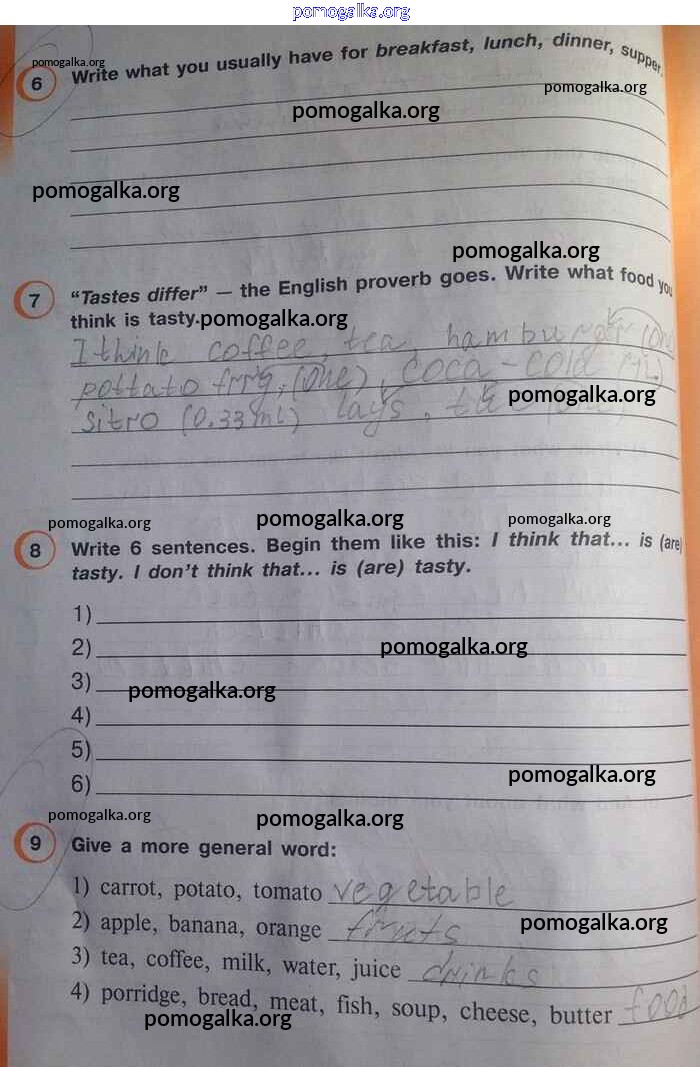 pomogalka.org
pomogalka.org
6 Write what you usually have for breakfast, lunch, dinner, supper.
pomogalka.org
pomogalka.org
pomogalka.org
pomogalka.org
7 "Tastes differ" — the English proverb goes. Write what food you
think is tasty.
pomogalka.org
I think coffee, tea, hamburger
pottato (one), coca-cola
pomogalka.org
sitro (0.33 ml) lays,
pomogalka.org
pomogalka.org
pomogalka.org
8 Write 6 sentences. Begin them like this: I think that... is (are)
tasty. I don't think that... is (are) tasty.
1)
2)
pomogalka.org
3)
pomogalka.org
4)
5)
6)
pomogalka.org
pomogalka.org
pomogalka.org
9 Give a more general word:
1) carrot, potato, tomato vegetable
2) apple, banana, orange fruts
pomogalka.org
3) tea, coffee, milk, water, juice drinks
4) porridge, bread, meat, fish, soup, cheese, butter food
pomogalka.org